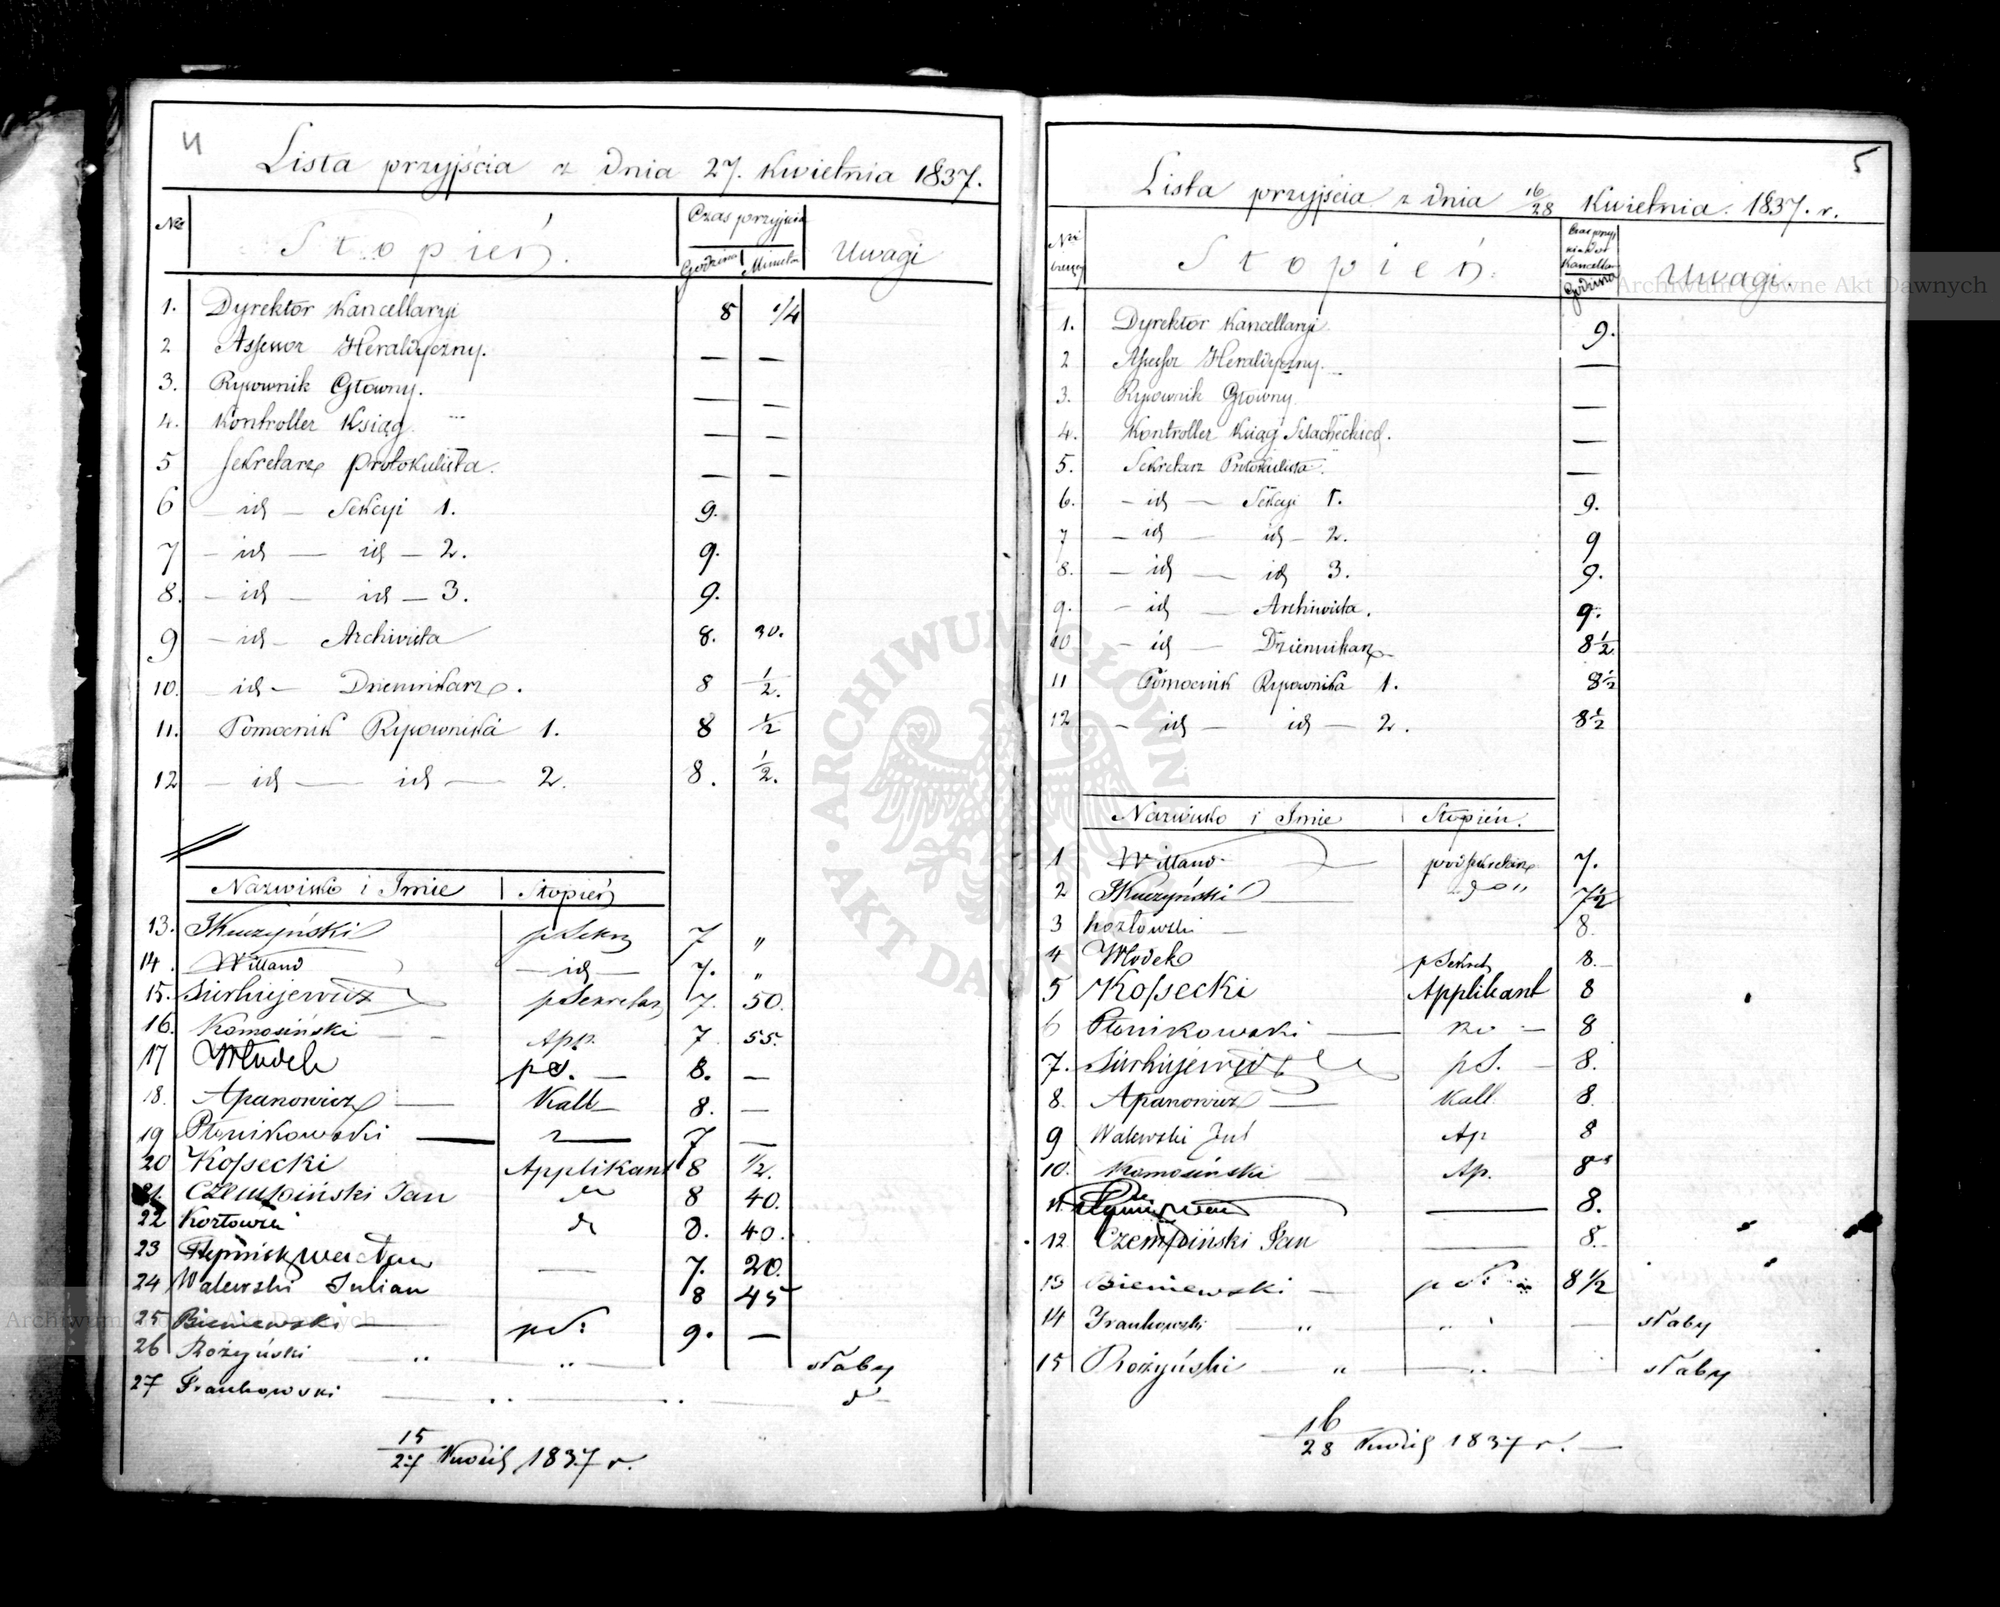 4
Lista przyjścia z dnia 27. Kwietnia 1837.
Nro Stopień. Czas przyjścia Uwagi
Godzina Minuta
1. Dyrektor Kancellaryi 8 1/4
2 Assessor Heraldyczny. — —
3. Rysownik Główny. — —
4. Kontroller Ksiąg. — —
5 Sekretarz Protokulista. — —
6 — id — Sekcyi 1. 9.
7 — id — id — 2. 9.
8. — id — id — 3. 9.
9 — id — Archiwista 8. 30.
10. — id — Dziennikarz. 8 1/2.
11. Pomocnik Rysownika 1. 8 1/2
12 — id — id — 2. 8. 1/2.
Nazwisko i Imie Stopień
13. Kuczyński pSekrz 7 "
14. Willand — id — 7. "
15. pSekretarz 7. 50.
16. Komosiński App. 7 55.
17 Włodek pS. — 8. —
18. Apanowicz — Kall 8. —
19 Płonikowski — 7 —
20 Kossecki Applikant 8 1/2.
21. Czempiński Jan do 8 40.
22 Kozłowski do 8. 40.
23 Wacław — 7. 20.
24 Walewski Julian 8 45
25 Bieniewski — pS: 9. —
26 Rożyński — " " — słaby
27 Frankowski — " " — d—
15/27 Kwiet 1837 r.
5
Lista przyjścia z dnia 16/28 Kwietnia. 1837. r.
Nro Stopień. Czas przyj Uwagi.
Kancella
Godzina
1. Dyrektor Kancellaryi 9.
2 Assessor Heraldyczny. —
3. Rysownik Główny. —
4. Kontroller Ksiąg Szlacheckich. —
5. Sekretarz Protokulista. —
6. — id — Sekcyi 1. 9.
7 — id — id — 2. 9
8. — id — id 3. 9.
9. — id — Archiwista. 9.
10 — id — Dziennikarz 8 1/2
11 Pomocnik Rysownika 1. 8 1/2
12 — id — id — 2. 8 1/2
Nazwisko i Imie Stopień.
1 Willand — podsekretarz 7.
2 Kuczyński — do " 7 1/2
3 Kozłowski — 8.
4 Włodek pSekret 8.
5 Kossecki Applikant 8
6 Płonikowski — — 8
7. pS. — 8.
8. Apanowicz — Kall 8.
9 Walewski Jul Ap 8
10. Komosiński Ap. 8
11. — 8.
12 Czempiński Jan — 8.
13 Bieniewski — pS: 8 1/2
14 Frankowski — " " — słaby
15 Rożyński — " — " słaby
16/28 Kwiet 1837 r. —
ARCHIWUM GŁÓWNE AKT DAWNYCH
Archiwum Główne Akt Dawnych
Archiwum Główne Akt Dawnych